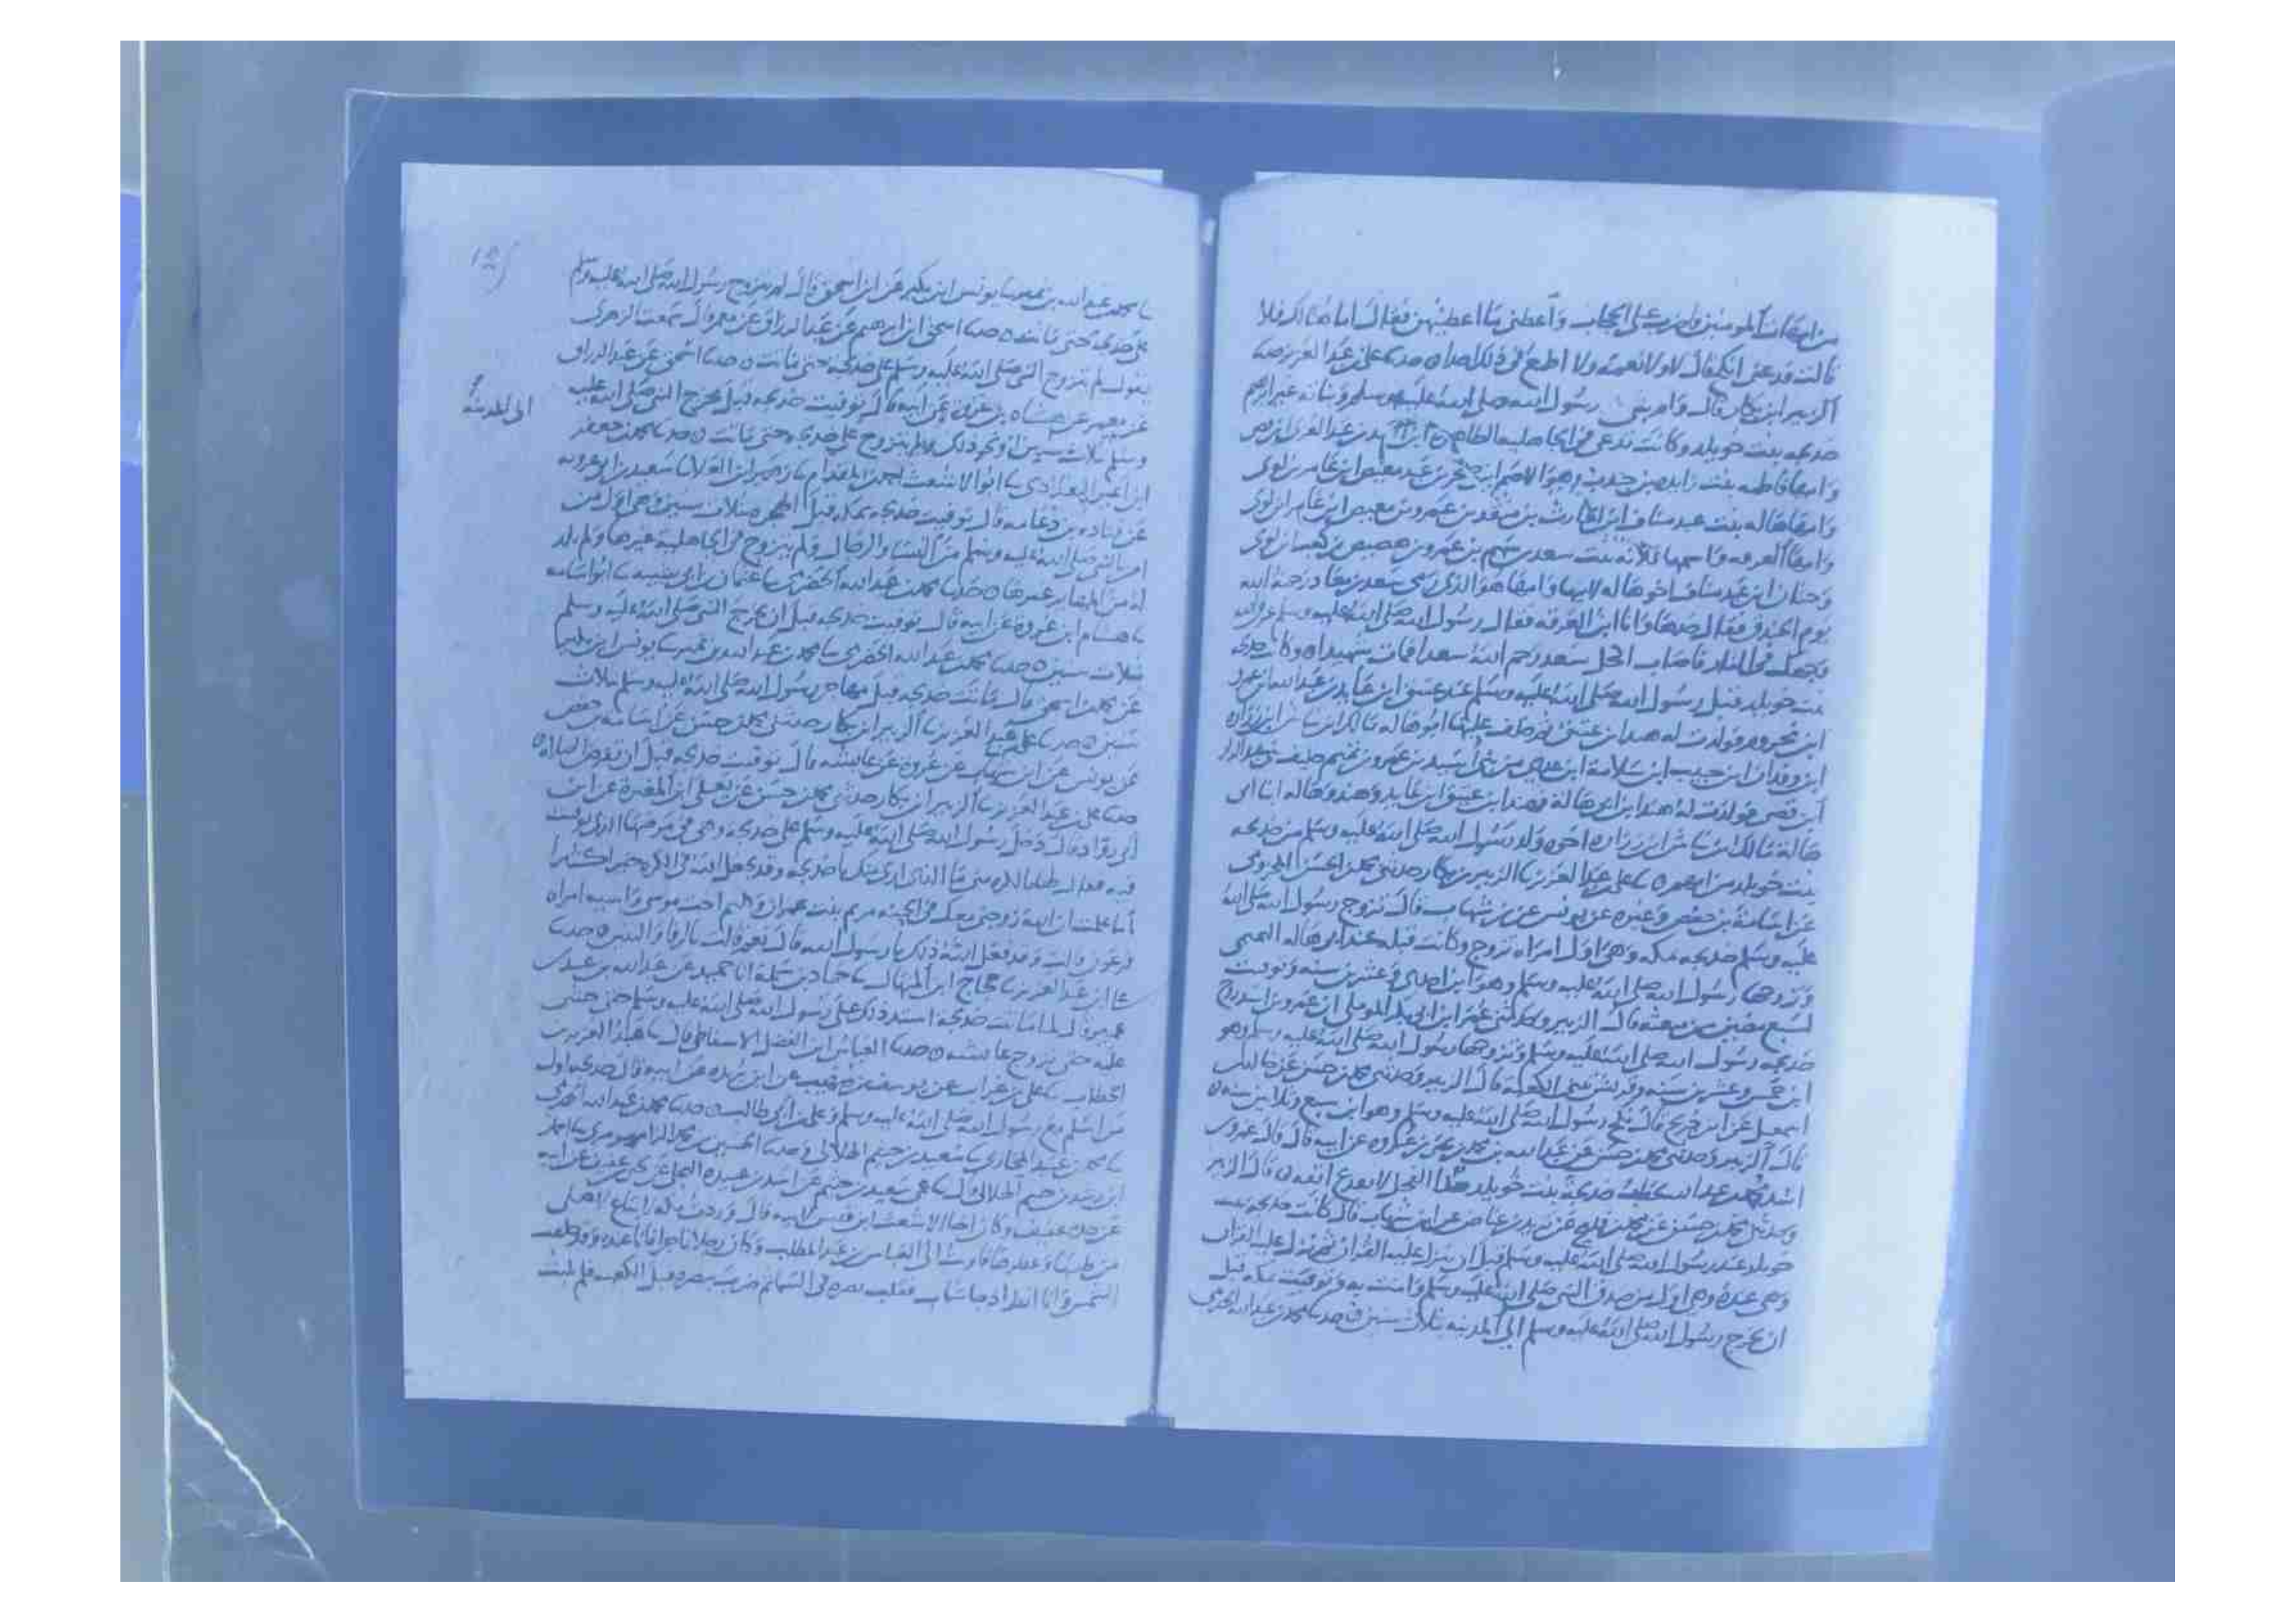 من امهات المومنين واضرب علي الحجاب واعطني ما اعطيتهن فقال اما هنالك فلا
قالت فدعني انكح قال لا ولا نعمة ولا اطمع في ذلك احدا ه حدثنا علي بن عبد العزيز حدثنا
الزبير ابن بكار قال وام بني رسول الله صلى الله عليه وسلم وبناته غير ابرهيم
خديجه بنت خويلد وكانت تدعى في الجاهلية الطاهره ابن اسد بن عبد العزى ابن قصي
وامها فاطمه بنت زايده بن جندب وهو الاصم ابن صخر بن عبد معيص ابن عامر بن لوي
وامها هاله بنت عبد مناف ابن الحارث بن منقذ بن عمرو بن معيص ابن عامر ابن لوي
وامها العرقه واسمها قلابه بنت سعد بن سهم بن عمرو بن هصيص بن كعب ابن لوي
وحنان ابن عبد مناف اخو هاله لابيها وامها هو الذي رمى سعد بن معاذ رحمة الله
يوم الخندق فقال خذها وانا ابن العرقه فقال رسول الله صلى الله عليه وسلم عرق الله
وجهك في النار فاصاب اكحل سعد رحم الله سعدا فمات شهيدا ه وكانت خديجه
بنت خويلد قبل رسول الله صلى الله عليه وسلم عند عتيق ابن عابد بن عبد الله ابن عمر
ابن مخزوم فولدت له هند ابن عتيق ثم خلف عليها ابو هاله مالك ابن نباش ابن زراره
ابن وقدان ابن حبيب ابن سلامة ابن عدي من بني أسيد بن عمرو بن تميم حليف بني عبد الدار
ابن قصي فولدت له هند ابن ابي هالة فهند ابن عتيق ابن عابد وهند وهاله ابنا ابي
هالة مالك ابن نباش ابن زراره اخوه ولد رسول الله صلى الله عليه وسلم من خديجه
بنت خويلد من امهم ه نا علي بن عبد العزيز نا الزبير بن بكار حدثني محمد بن الحسن المخزومي
عن اسامة بن حفص وغيره عن يونس عن بن شهاب قال تزوج رسول الله صلى الله
عليه وسلم خديجه بمكه وهي اول امراه تزوج وكانت قبله عند ابي هاله التميمي
وتزوجها رسول الله صلى الله عليه وسلم وهو ابن احدى وعشرين سنه وتوفيت
لسبع مضين من مبعثه قال الزبير وحدثني عمر ابن ابي بكر الموملي ان عمرو بن اسد زوج
خديجه رسول الله صلى الله عليه وسلم وتزوجها رسول الله صلى الله عليه وسلم وهو
ابن خمس وعشرين سنه وقريش تبني الكعبة قال الزبير وحدثني محمد بن حسن عن خالد بن
اسمعيل عن ابن جريج قال نكح رسول الله صلى الله عليه وسلم وهو ابن سبع وثلاثين سنه ه
قال الزبير وحدثني محمد بن حسن عن عبد الله بن محمد بن يحيى بن عروه عن ابيه قال قال عمرو بن
اسد محمد بن عبد الله يخطب خديجة بنت خويلد هذا الفحل لا يقدع انفه ه قال الزبير
وحدثني محمد بن حسن عن محمد بن فليح عن يزيد بن عياض عن ابن شهاب قال كانت خديجه بنت
خويلد عند رسول الله صلى الله عليه وسلم قبل ان ينزل عليه القران ثم نزل عليه القران
وهي عنده وهي اول من صدق النبي صلى الله عليه وسلم وامنت به وتوفيت بمكه قبل
ان يخرج رسول الله صلى الله عليه وسلم الى المدينه بثلاث سنين ه حدثنا محمد بن عبد الله الحضرمي
نا محمد بن عبد الله بن نمير نا يونس ابن بكير عن ابن اسحق قال لم يتزوج رسول الله صلى الله عليه وسلم
على خديجه حتى ماتت ه حدثنا اسحق ابن ابرهيم عن عبد الرزاق عن معمر قال سمعت الزهري
يقول لم يتزوج النبي صلى الله عليه وسلم على خديجة حتى ماتت ه حدثنا اسحق عن عبد الرزاق
عن معمر عن هشام بن عروة عن ابيه قال توفيت خديجه قبل مخرج النبي صلى الله عليه
الى المدينه
وسلم بثلاث سنين او نحو ذلك ولم يتزوج على خديجه حتى ماتت ه حدثنا محمد بن جعفر
ابن اعين البغدادي نا ابو الاشعث احمد بن المقدام نا زهير ابن العلا نا سعيد بن ابي عروبه
عن قتاده بن دعامه قال توفيت خديجه بمكه قبل الهجره بثلاث سنين وهي اول من
امن بالنبي صلى الله عليه وسلم من النساء والرجال ولم يتزوج في الجاهلية غيرها ولم يلد
له من المهاير غيرها ه حدثنا محمد بن عبد الله الحضرمي نا عثمان بن ابي شيبه نا ابو اسامه
نا هشام ابن عروة عن ابيه قال توفيت خديجه قبل ان يخرج النبي صلى الله عليه وسلم
بثلاث سنين ه حدثنا محمد بن عبد الله الحضرمي نا محمد بن عبد الله بن نمير نا يونس ابن بكير
عن محمد بن اسحق قال ماتت خديجه قبل مهاجر رسول الله صلى الله عليه وسلم بثلاث
سنين ه حدثنا علي بن عبد العزيز نا الزبير ابن بكار حدثني محمد بن حسن عن اسامة بن حفص
عن يونس عن ابن شهاب عن عروه عن عايشه قال توفيت خديجه قبل ان تفرض الصلاه ه
حدثنا علي بن عبد العزيز نا الزبير ابن بكار حدثني محمد بن حسن عن يعلى ابن المغيرة عن ابن
ابي رواد قال دخل رسول الله صلى الله عليه وسلم على خديجه وهي في مرضها الذي توفيت
فيه فقال لها بالكره مني ما الذي ارى منك يا خديجه وقد يجعل الله في الكره خيرا كثيرا
أما علمت ان الله زوجني معك في الجنه مريم بنت عمران وكلثم اخت موسى واسيه امراه
فرعون قالت وقد فعل الله ذلك يا رسول الله قال نعم قالت بالرفا والبنين ه حدثنا
علي ابن عبد العزيز نا حجاج ابن المنهال نا حماد بن سلمة انا حميد عن عبد الله بن عبيد بن
عمير قال لما ماتت خديجة اشتد ذلك على رسول الله صلى الله عليه وسلم حتى خشي
عليه حتى تزوج عايشه ه حدثنا العباس ابن الفضل الاسفاطي قال نا عبد العزيز بن
الخطاب نا علي بن غراب عن يوسف بن صهيب عن ابن بريده عن ابيه قال خديجه اول
من اسلم مع رسول الله صلى الله عليه وسلم وعلي بن ابي طالب ه حدثنا محمد بن عبد الله الحضرمي
نا محمد بن عبيد المحاربي نا سعيد بن خثيم الهلالي وحدثنا الحسين بن محمد الرامهرمزي نا احمد
ابن رشد بن خثيم الهلالي قال نا عمي سعيد بن خثيم عن اسد بن عبيده البجلي عن يحيى بن عفيف عن ابيه
عن جده عفيف وكان اخا الاشعث ابن قيس لابيه قال وردت مكه لابتاع لاهلي
من طيبها وعطرها فاويت الى العباس بن عبد المطلب وكان رجلا تاجرا فانا عنده وقد طلعت
الشمس وانا انظر اذ جا شاب فقلب بصره في السما ثم ضرب ببصره قبل الكعبه فلم يلبث